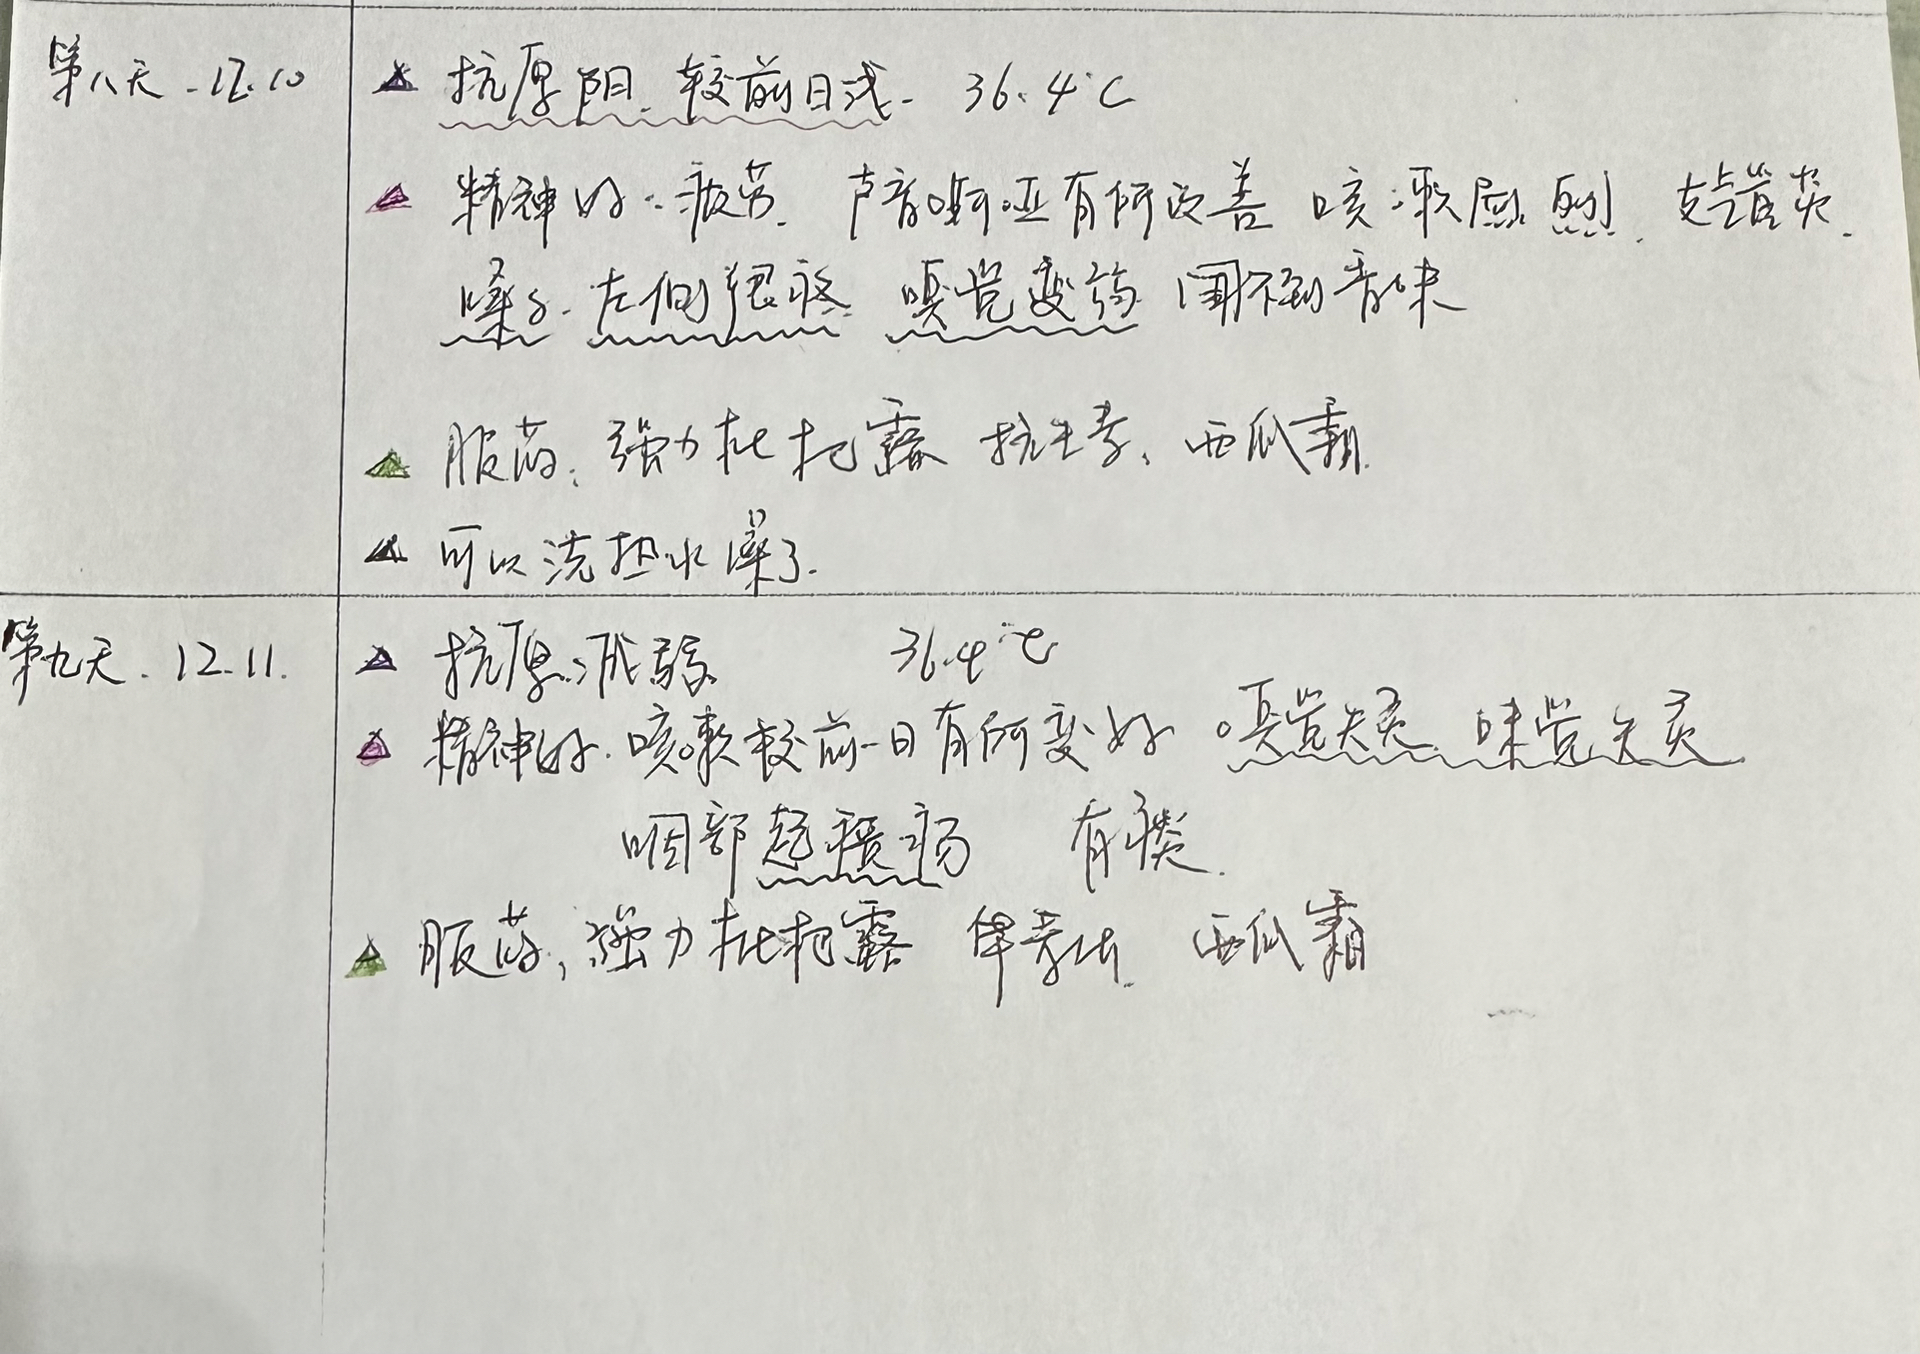 第八天.12.10
抗原阳.较前日浅. 36.4℃
精神好.疲劳.声音嘶哑有所改善 咳嗽剧烈.支气管炎.
嗓子.左侧很疼 嗅觉变弱 闻不到香味
服药:强力枇杷露 抗生素、西瓜霜.
可以洗热水澡了.
第九天.12.11.
抗原减弱 36.4℃
精神好.咳嗽较前一日有所变好 嗅觉失灵.味觉失灵
咽部起溃疡 有痰.
服药:强力枇杷露 西瓜霜